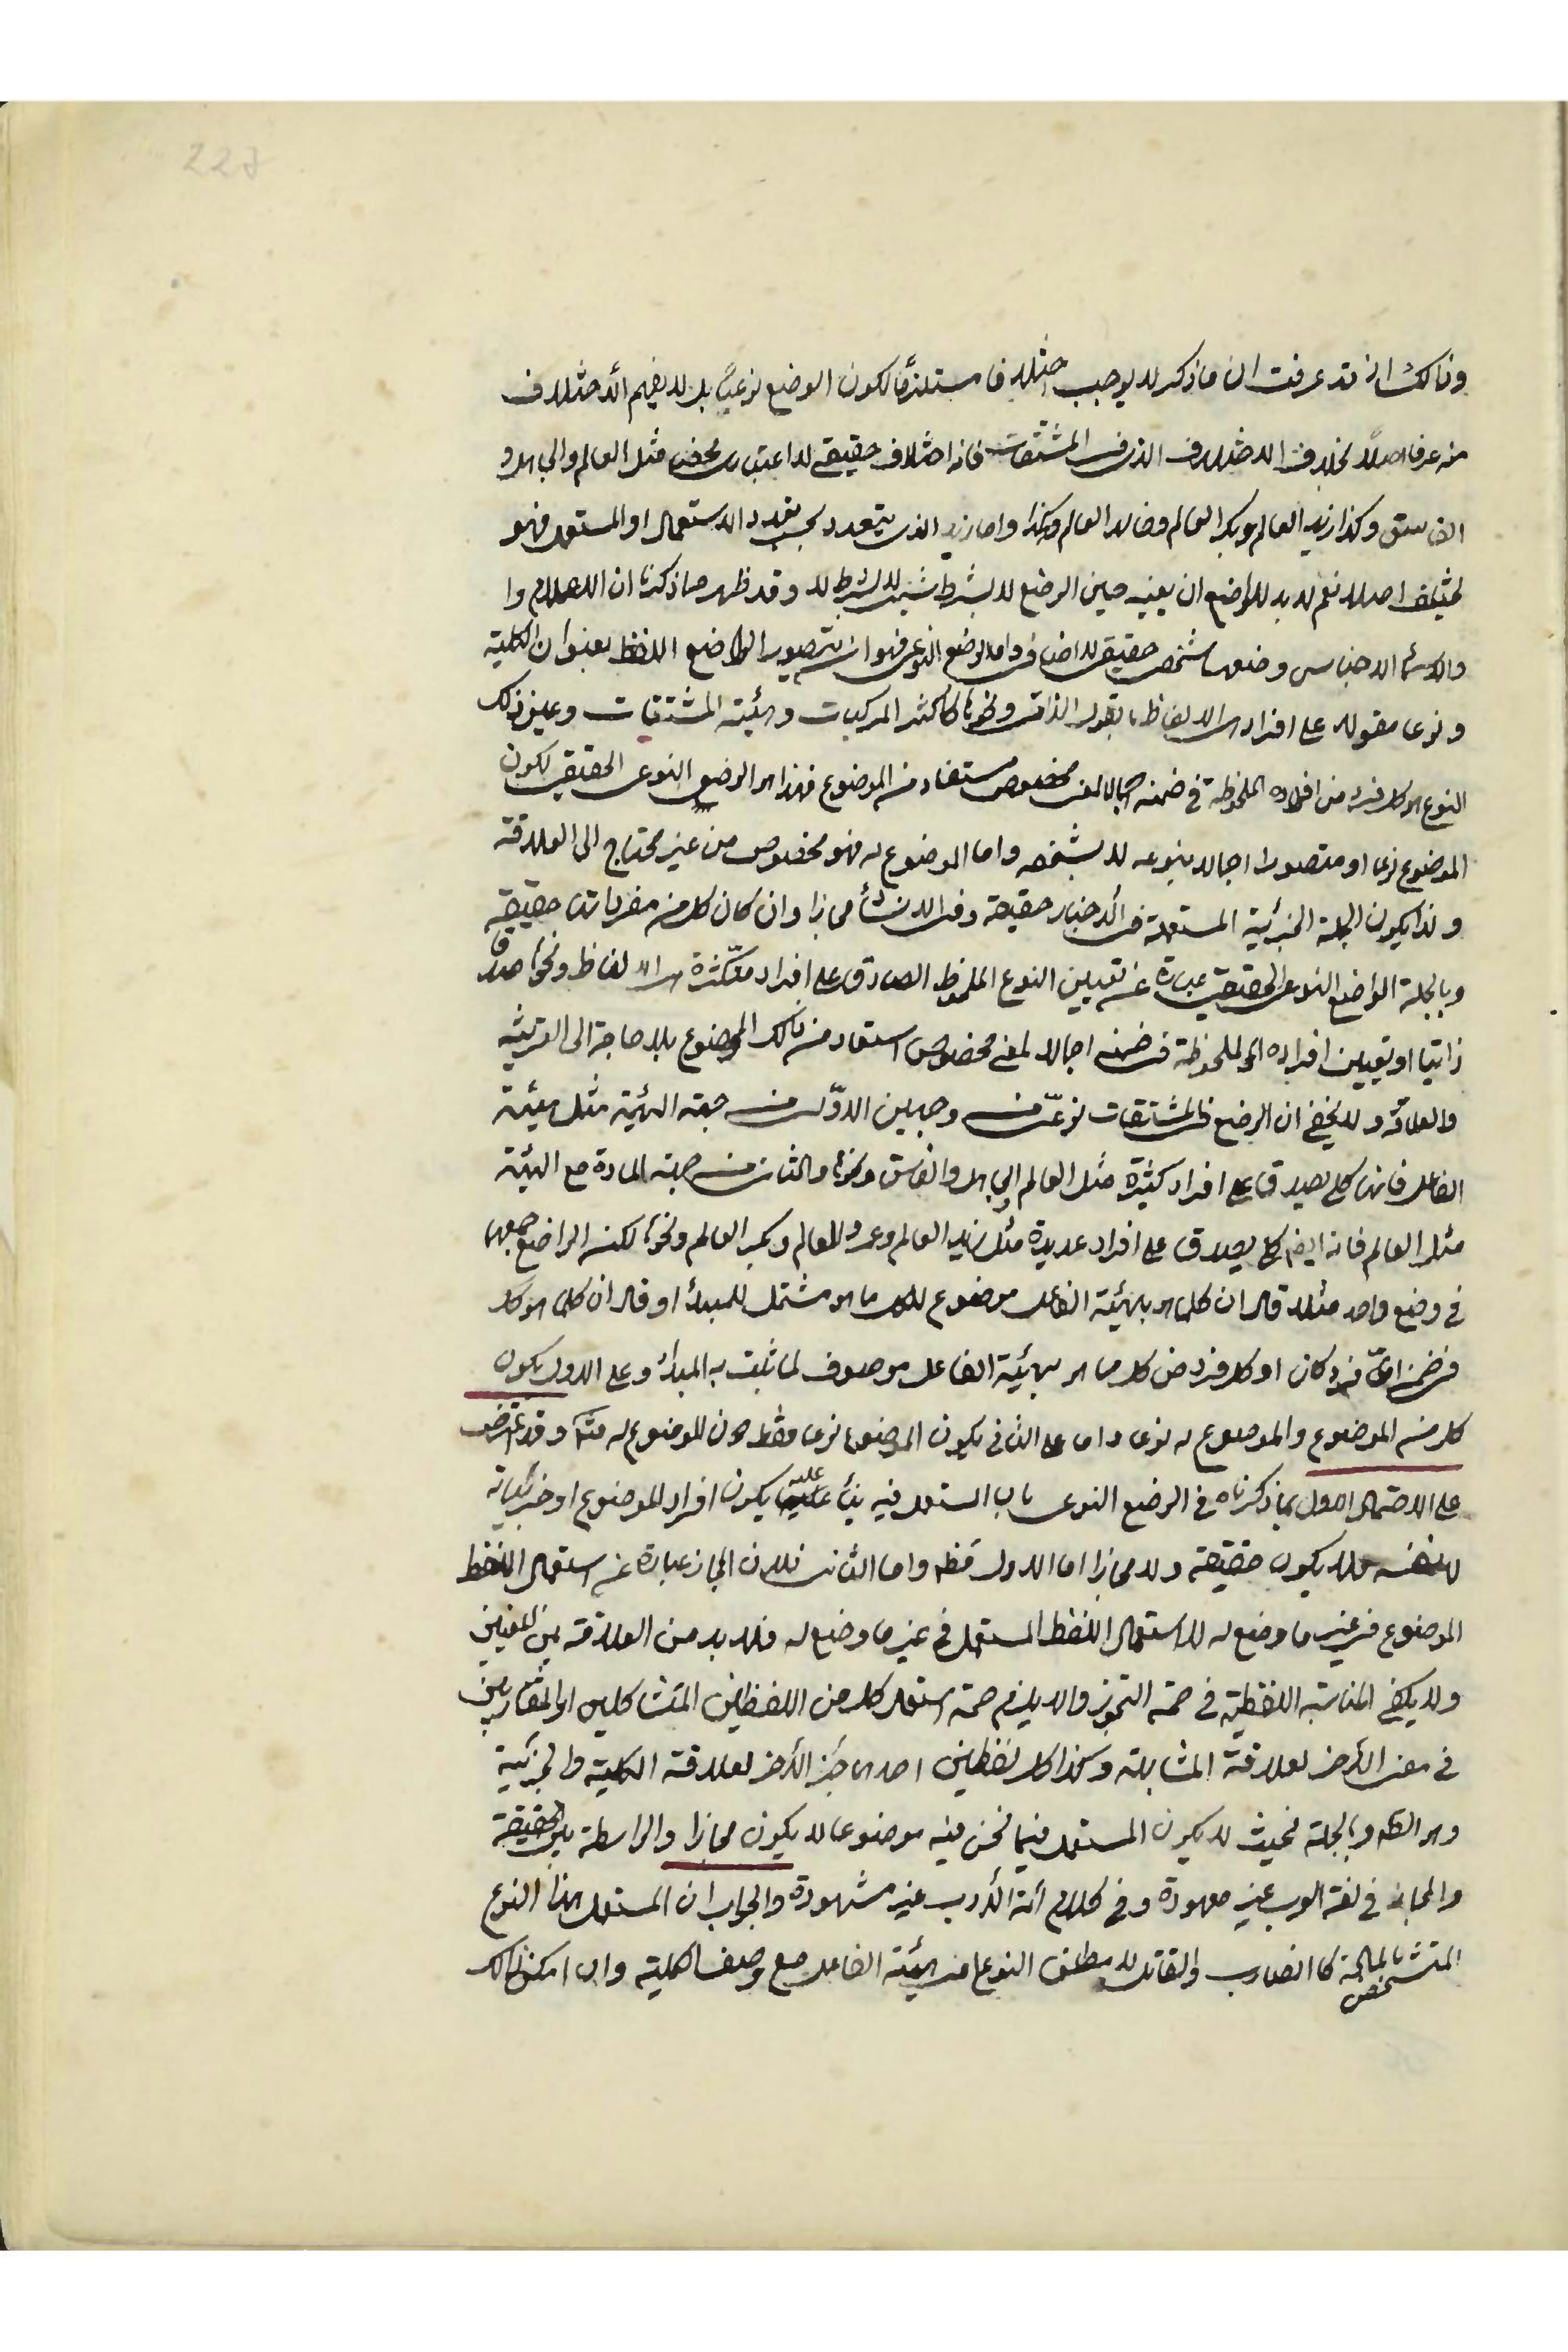 227
وذالك اذ قد عرفت ان ماذكر لا يوجب اختلافا مستلزما لكون الوضع نوعيا بل لا يفهم الاختلاف
منه عرفا اصلا بخلاف الاختلاف الذى فى المشتقات فانه اختلاف حقيقى لا اعتبارى محض مثل العالم والجاهل و
الفاسق وكذا زيد العالم وبكر العالم وخالد العالم وهكذا واما زيد الذى يتعدد بحسب تعدد الاستعمال او المستعمل فهو
لا يختلف اصلا نعم لا بد للواضع ان يعينه حين الوضع لا بشرط شئ لا بشرط لا وقد ظهر مما ذكرنا ان الاعلام وا
والاسماء الاجناس وضعها شخصى حقيقى لا اضافى واما الوضع النوعى فهو ان يتصور الواضع اللفظ بعنوان الكلية
ونوعا مقولا على افراد الالفاظ بقول الذاتى ونحوها كاكثر المركبات وهيئة المشتقات وعين ذلك
النوع او كل فرد من افراده الملحوظة فى ضمنه اجمالا لمعنى مخصوص مستفاد من الموضوع فهذا هو الوضع النوعى الحقيقى لكون
الموضوع نوعا او متصورا اجمالا بنوعه لا بشخصه واما الموضوع له فهو مخصوص من غير محتاج الى العلاقة
ولذا يكون الجملة الخبرية المستعملة فى الاخبار حقيقة وفى الانشاء مجازا وان كان كل من مفرداتها حقيقة
وبالجملة الواضع النوعى الحقيقى عبارة عن تعيين النوع الملحوظ الصادق على افراد متكثرة من الالفاظ ونحوها صدقا
ذاتيا او تعيين افراده الملحوظة فى ضمنه اجمالا لمعنى مخصوص استفاد من ذالك الموضوع بلا حاجة الى القرينة
والعلاقة ولا يخفى ان الوضع فى المشتقات نوعى من وجهين الاول من جهة الهيئة مثل هيئة
الفاعل فانها كلى يصدق على افراد كثيرة مثل العالم والجاهل والفاسق ونحوها والثانى من جهة المادة مع الهيئة
مثل العالم فانه ايضا كلى يصدق على افراد عديدة مثل زيد العالم وعمرو العالم وبكر العالم ونحوها لكن الواضع جمعهما
فى وضع واحد مثلا قال ان كلما هو بهيئة الفاعل موضوع لكل ما هو مشتمل للمبدأ او قال ان كلما هو كل
فى ضمن اى فرد كان او كل فرد من كل ما هو بهيئة الفاعل موصوف لما ثبت به المبدأ وعلى الاول يكون
كل من الموضوع والموضوع له نوعا واما على الثانى يكون الموضوع نوعا فقط دون الموضوع له منه وقد يعترض
على الاحتمال الاول بما ذكرناه فى الوضع النوعى بان المستعمل فيه بناء عليه يكون افراد الموضوع او جزئياته
لا نفسه فلا يكون حقيقة ولا مجازا اما الاول فظ واما الثانى فلان المجاز عبارة عن استعمال اللفظ
الموضوع فى غير ما وضع له لا استعمال اللفظ المستعمل فى غير ما وضع له فلا بد من العلاقة بين المعنيين
ولا يكفى المناسبة اللفظية فى صحة التجوز والا يلزم صحة استعمال كل من اللفظين المتشاكلين او المتقاربين
فى معنى الاخر لعلاقة المشابهة وكذا كل لفظين احدهما جزء الاخر لعلاقة الكلية والجزئية
وهو الظ وبالجملة فحيث لا يكون المستعمل فيما نحن فيه موضوعا لا يكون مجازا والواسطة بين الحقيقة
والمجاز فى لغة العرب غير معهودة وفى كلام ائمة الادب غير مشهودة والجواب ان المستعمل هذا النوع
المتشخص بالمادة كالضارب والقاتل لا مطلق النوع اعنى هيئة الفاعل مع وصف الكلية وان امكن ذالك